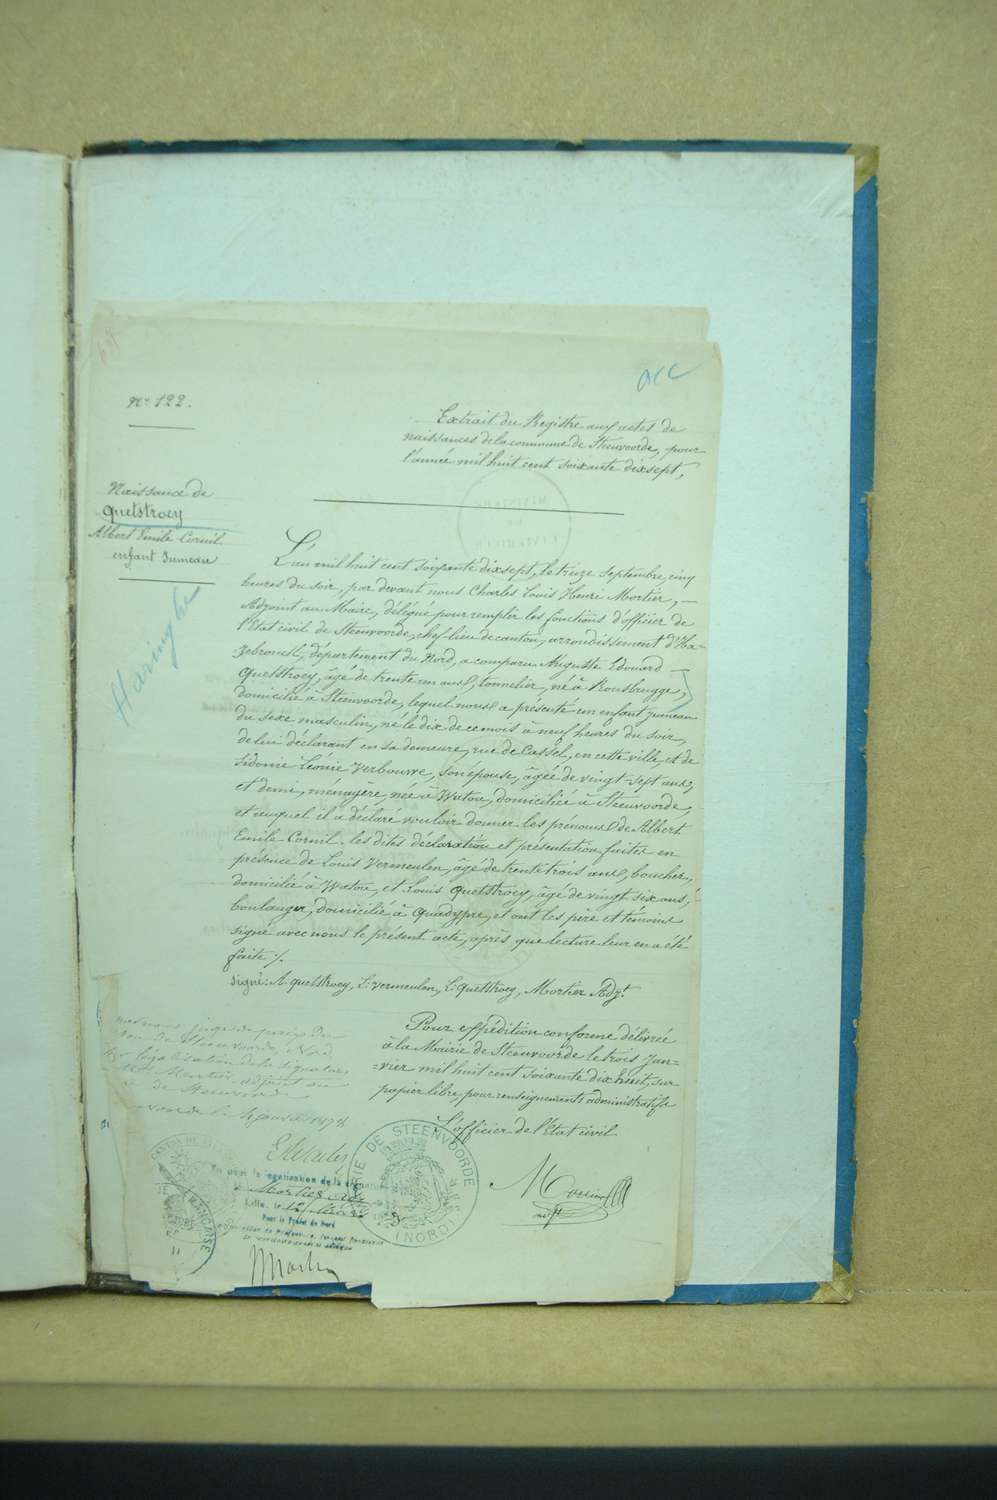 acc
N° 122.
Extrait du Registre aux actes de
naissances de la commune de Steenvoorde, pour
l'année mil huit cent soixante dixsept,
Naissance de
Quetstroey
Albert Emile Cornil
enfant Jumeau
Haringhe
L'an mil huit cent soixante dixsept, le treize septembre, cinq
heures du soir, par devant nous Charles Louis Henri Mortier, —
Adjoint au Maire, délégué pour remplir les fonctions d'officier de
l'Etat civil de Steenvoorde, chef-lieu de canton, arrondissement d'Ha-
zebrouck, département du Nord, a comparu Auguste Edouard —
Quetstroey, âgé de trente un ans, tonnelier, né à Rousbrugge,
domicilié à Steenvoorde, lequel nous a présenté un enfant jumeau
du sexe masculin, né le dix de ce mois à neuf heures du soir,
de lui déclarant en sa demeure, rue de Cassel, en cette ville, et de
Sidonie Léonie Verbouwe, son épouse, âgée de vingt-sept ans,
et demi, ménagère, née à Watou, domiciliée à Steenvoorde,
et auquel il a déclaré vouloir donner les prénoms de Albert
Emile Cornil. les dites déclaration et présentation faites en
présence de Louis Vermeulen, âgé de trente trois ans, boucher,
domicilié à Watou, et Louis Quetstroey, âgé de vingt six ans,
boulanger, domicilié à Quaëdypre, et ont les père et témoins
signé avec nous le présent acte, après que lecture leur en a été
faite ./.
signé: A. quetstroey, L. vermeulen, L. Quetstroey, Mortier Adjt.
Pour expédition conforme délivrée
à la Mairie de Steenvoorde le trois Jan-
=vier mil huit cent soixante dix huit, sur
papier libre, pour renseignements administratifs
L'officier de l'Etat civil
Mortier
adjt
juge de paix du
de Steenvoorde, Nord
légalisation de la signature
de M. Mortier, adjoint au
de Steenvoorde
MAIRIE DE STEENVOORDE
(NORD)
la légalisation de la signature
Mortier Adj
Lille, le
Pour le Préfet du Nord